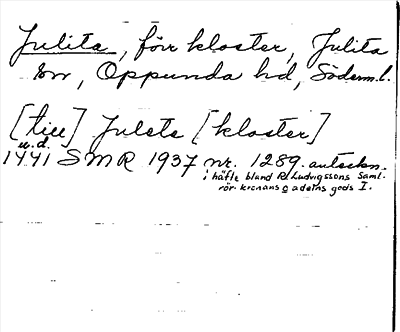 Julita, förr kloster, Julita
sn, Oppunda hd, Söderml.
[till] Juleta [kloster]
u.d.
1441 SMR 1937 nr. 1289. anteckn.
i häfte bland R. Ludvigssons Saml.
rör. kronans o adelns gods I.